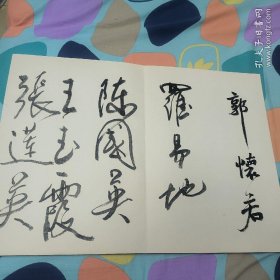 郭懷若
羅易地
陈國英
王玉霞
張蓮英
孔夫子旧书网